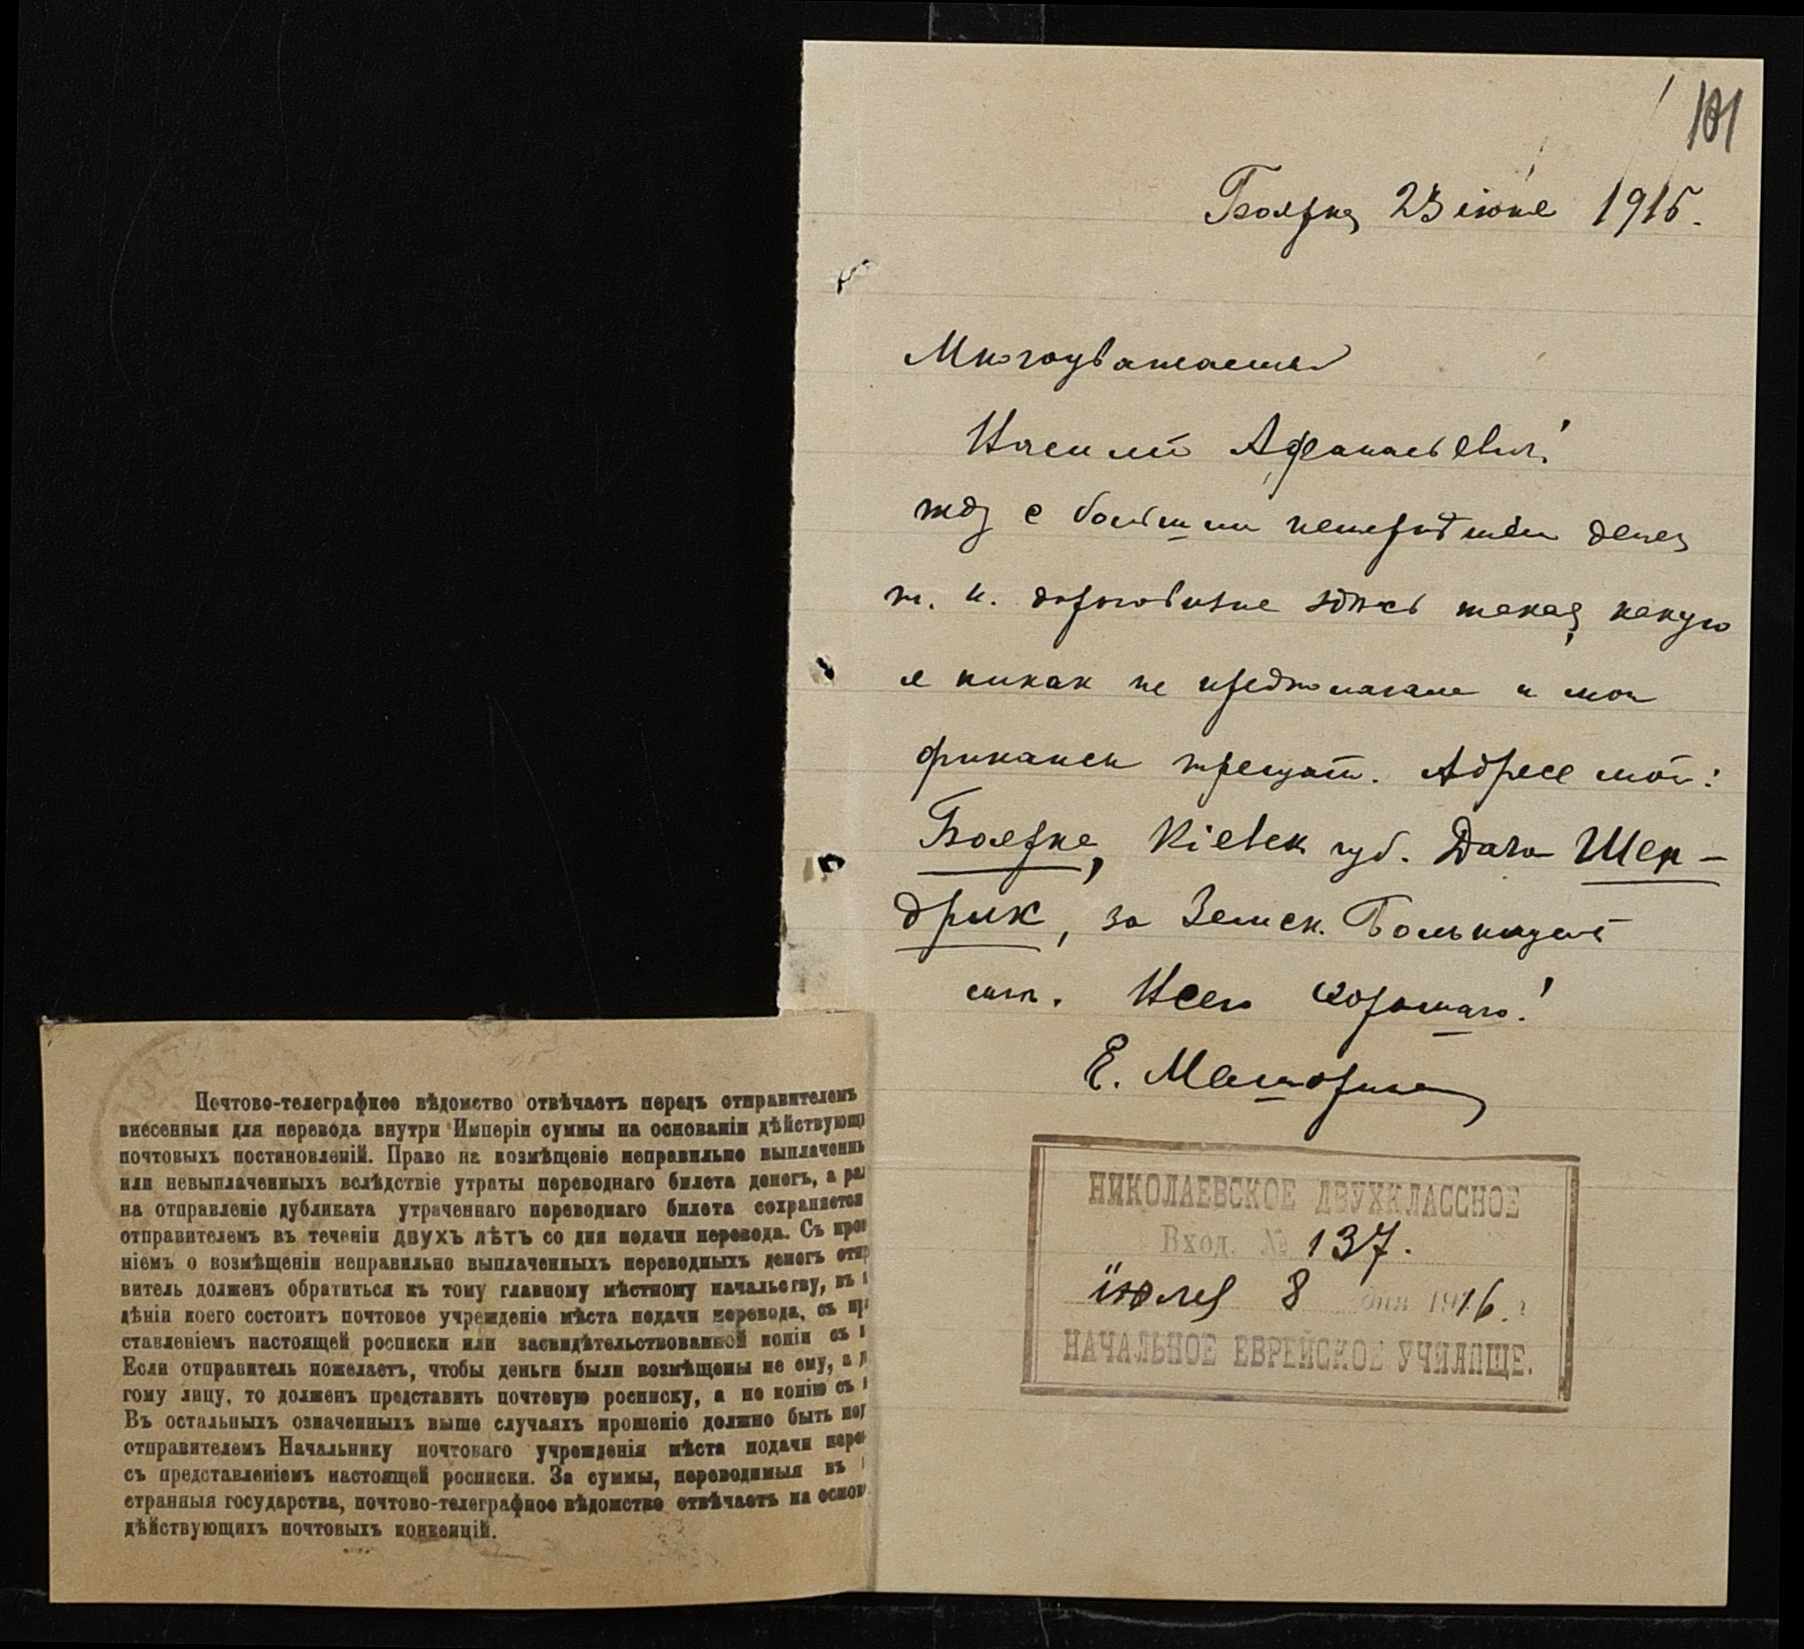 101
Боярка, 23 июня 1916.
Многоуважаемый
Василий Афанасьевич!
жду с большим нетерпѣнием денег
т. к. дороговизна здѣсь такая, какую
я никак не предполагала и мои
финансы трещат. Адрес мой:
Боярка, Кіевск. губ. Дача Шен-
дрик, за Земск. Больницей
Всего хорошаго!
Е.
НИКОЛАЕВСКОЕ ДВУХКЛАССНОЕ
Вход. № 137.
июля 8 дня 1916 г.
НАЧАЛЬНОЕ ЕВРЕЙСКОЕ УЧИЛИЩЕ.
Почтово-телеграфное вѣдомство отвѣчаетъ передъ отправителемъ
внесенныя для перевода внутри Имперіи суммы на основаніи дѣйствующи
почтовыхъ постановленій. Право на возмѣщеніе неправильно выплаченны
или невыплаченныхъ вслѣдствіе утраты переводнаго билета денегъ, а ра
на отправленіе дубликата утраченнаго переводнаго билета сохраняется
отправителемъ въ теченіи ДВУХЪ ЛѢТЪ со дня подачи перевода. Съ прош
ніемъ о возмѣщеніи неправильно выплаченныхъ переводныхъ денегъ отпр
витель долженъ обратиться къ тому главному мѣстному начальству, въ
дѣніи коего состоитъ почтовое учрежденіе мѣста подачи перевода, съ пр
ставленіемъ настоящей росписки или засвидѣтельствованной копіи съ н
Если отправитель пожелаетъ, чтобы деньги были возмѣщены не ему, а д
гому лицу, то долженъ представить почтовую росписку, а не копію съ н
Въ остальныхъ означенныхъ выше случаяхъ прошеніе должно быть под
отправителемъ Начальнику почтоваго учрежденія мѣста подачи пере
съ представленіемъ настоящей росписки. За суммы, переводимыя въ
странныя государства, почтово-телеграфное вѣдомство отвѣчаетъ на основ
дѣйствующихъ почтовыхъ конвенцій.